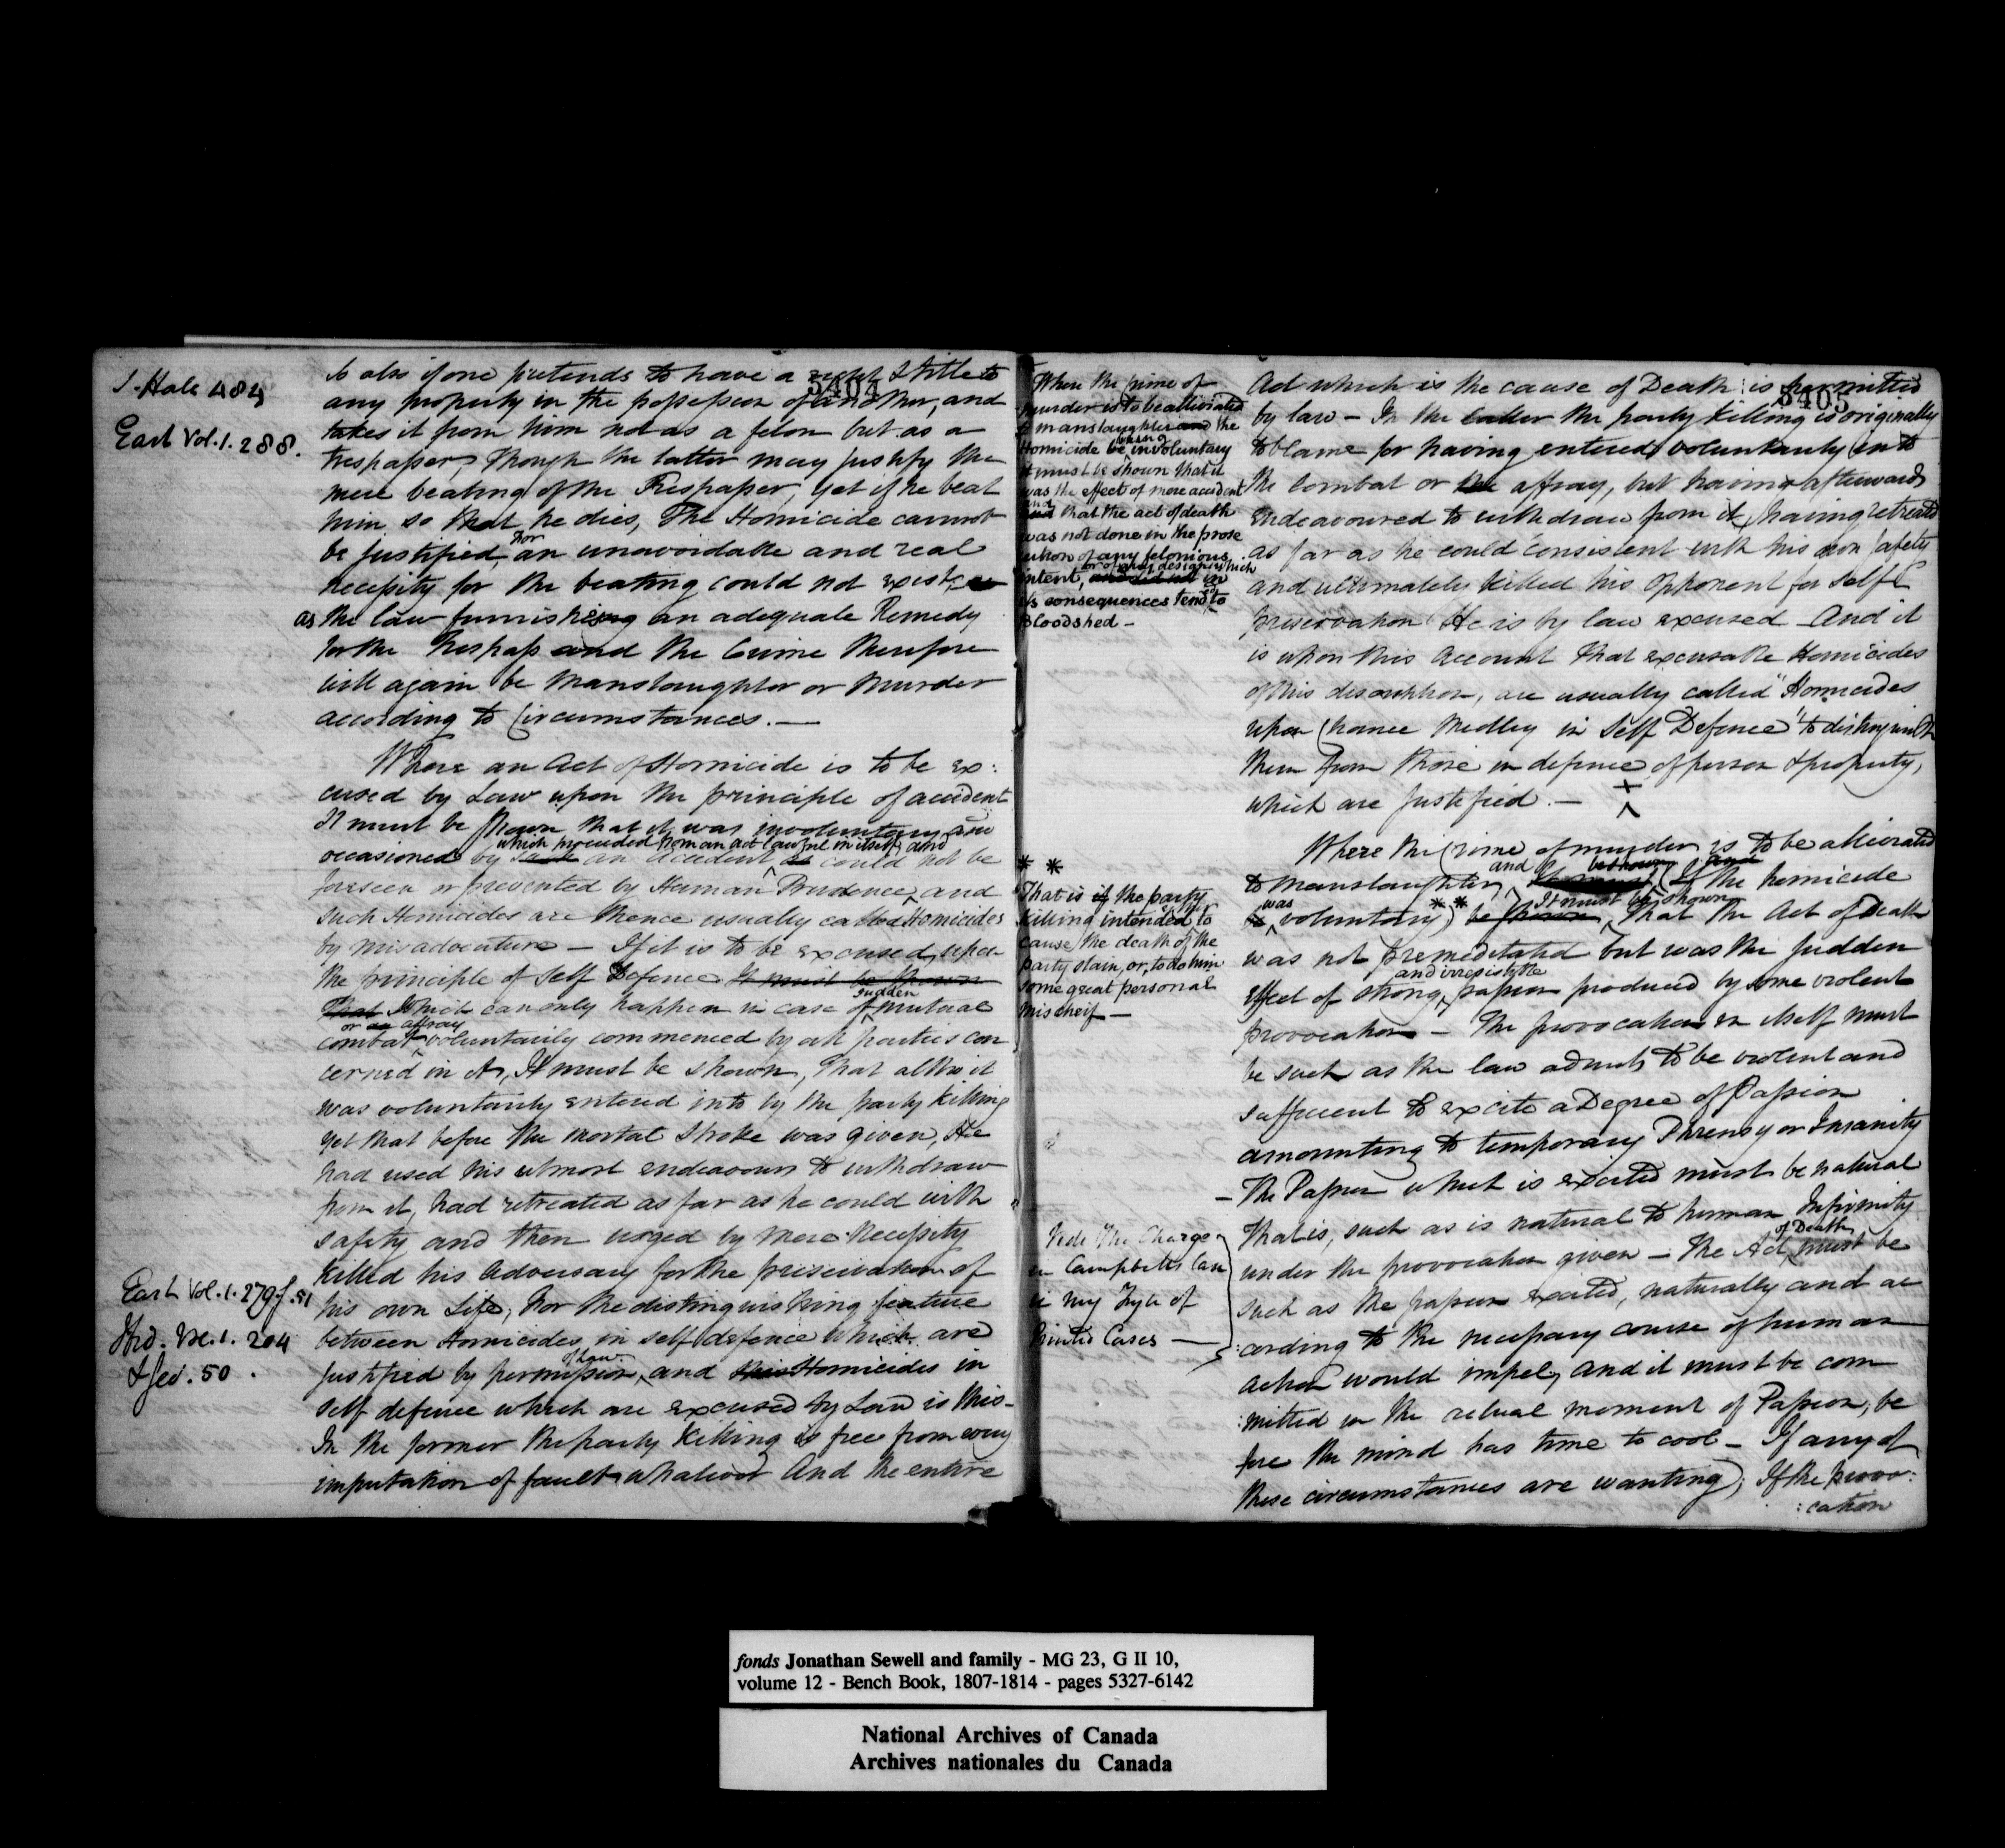 1. Hale 484
East Vol. 1. 288.
5404
So also if one pretends to have a right & title to
any property in the possession of another, and
takes it from him not as a felon but as a
trespasser, Though the latter may justify the
mere beating of the Trespasser, yet if he beat
him so that he dies, The Homicide cannot
be justified, for an unavoidable and real
necessity for the beating could not exist,
as the law furnishing an adequate Remedy
for the Trespass and the Crime therefore
will again be Manslaughter or Murder
according to Circumstances. —
Where an Act of Homicide is to be ex:
cused by Law upon the principle of accident
It must be shown that it was involuntary and
which proceeded from an act lawful in itself, and
occasioned by an accident could not be
foreseen or prevented by Human Prudence, and
such Homicides are thence usually called Homicides
by misadventure — If it is to be excused upon
the principle of Self Defence It must be shown
sudden
That Which can only happen in case of mutual
or an affray
combat voluntarily commenced by all parties con
cerned in it, It must be shown, That altho it
was voluntarily entered into by the party killing
yet that before the mortal stroke was given, He
had used his utmost endeavours to withdraw
from it, had retreated as far as he could with
safety and then urged by mere Necessity
killed his Adversary for the preservation of
his own Life, for the distinguishing feature
between Homicides in self defence which are
of Law
justified by permission, and this Homicides in
self defence which are excused by Law is this —
In the former the party killing is free from every
imputation of fault whatever And the entire
East Vol. 1. 279 f. 51
Ibid. Vol. 1. 204
& sed. 50.
Where the crime of
murder is to be alliviated
to manslaughter and the
Homicide be involuntary
it must be shown that it
was the effect of mere accident
and
and that the act of death
was not done in the prose
cution of any felonious
or of any design which
intent, and did not in
its consequences tend to
Bloodshed —
* *
That is if the party
killing intended to
cause the death of the
party slain, or, to do him
some great personal
mischeif —
Vide The Charge
in Campbells Case
in my Fyle of
Printed Cases —
5405
Act which is the cause of Death is permitted
by law — In the latter the party killing is originally
to blame for having entered voluntarily into
the Combat or the affray, but having afterwards
endeavoured to withdraw from it, having retreated
as far as he could consistent with his own safety
and ultimately killed his Opponent for self
preservation He is by law excused And it
is upon this Account that excusable Homicides
of this description, are usually called "Homicides
upon Chance Medley in Self Defence" to distinguish
them from those in defence of person & property,
which are justified. —
Where the Crime of murder is to be alliviated
and
to manslaughter, If the homicide
was It must be shown
voluntary) ** be shown, That the Act of Death
was not premeditated but was the sudden
and irresistible
effect of strong passion produced by some violent
provocation — The provocation in itself must
be such as the law admits to be violent and
sufficient to excite a Degree of Passion
amounting to temporary Phrensy or Insanity
— The Passion which is excited must be natural
That is, such as is natural to human Infirmity
of Death
under the provocation given — The Act must be
such as the passion excited, naturally and ac
:cording to the necessary course of human
action would impel, and it must be com
:mitted in the actual moment of Passion, be
fore the mind has time to cool — If any of
these circumstances are wanting, If the provo:
:cation
fonds Jonathan Sewell and family - MG 23, G II 10,
volume 12 - Bench Book, 1807-1814 - pages 5327-6142
National Archives of Canada
Archives nationales du Canada